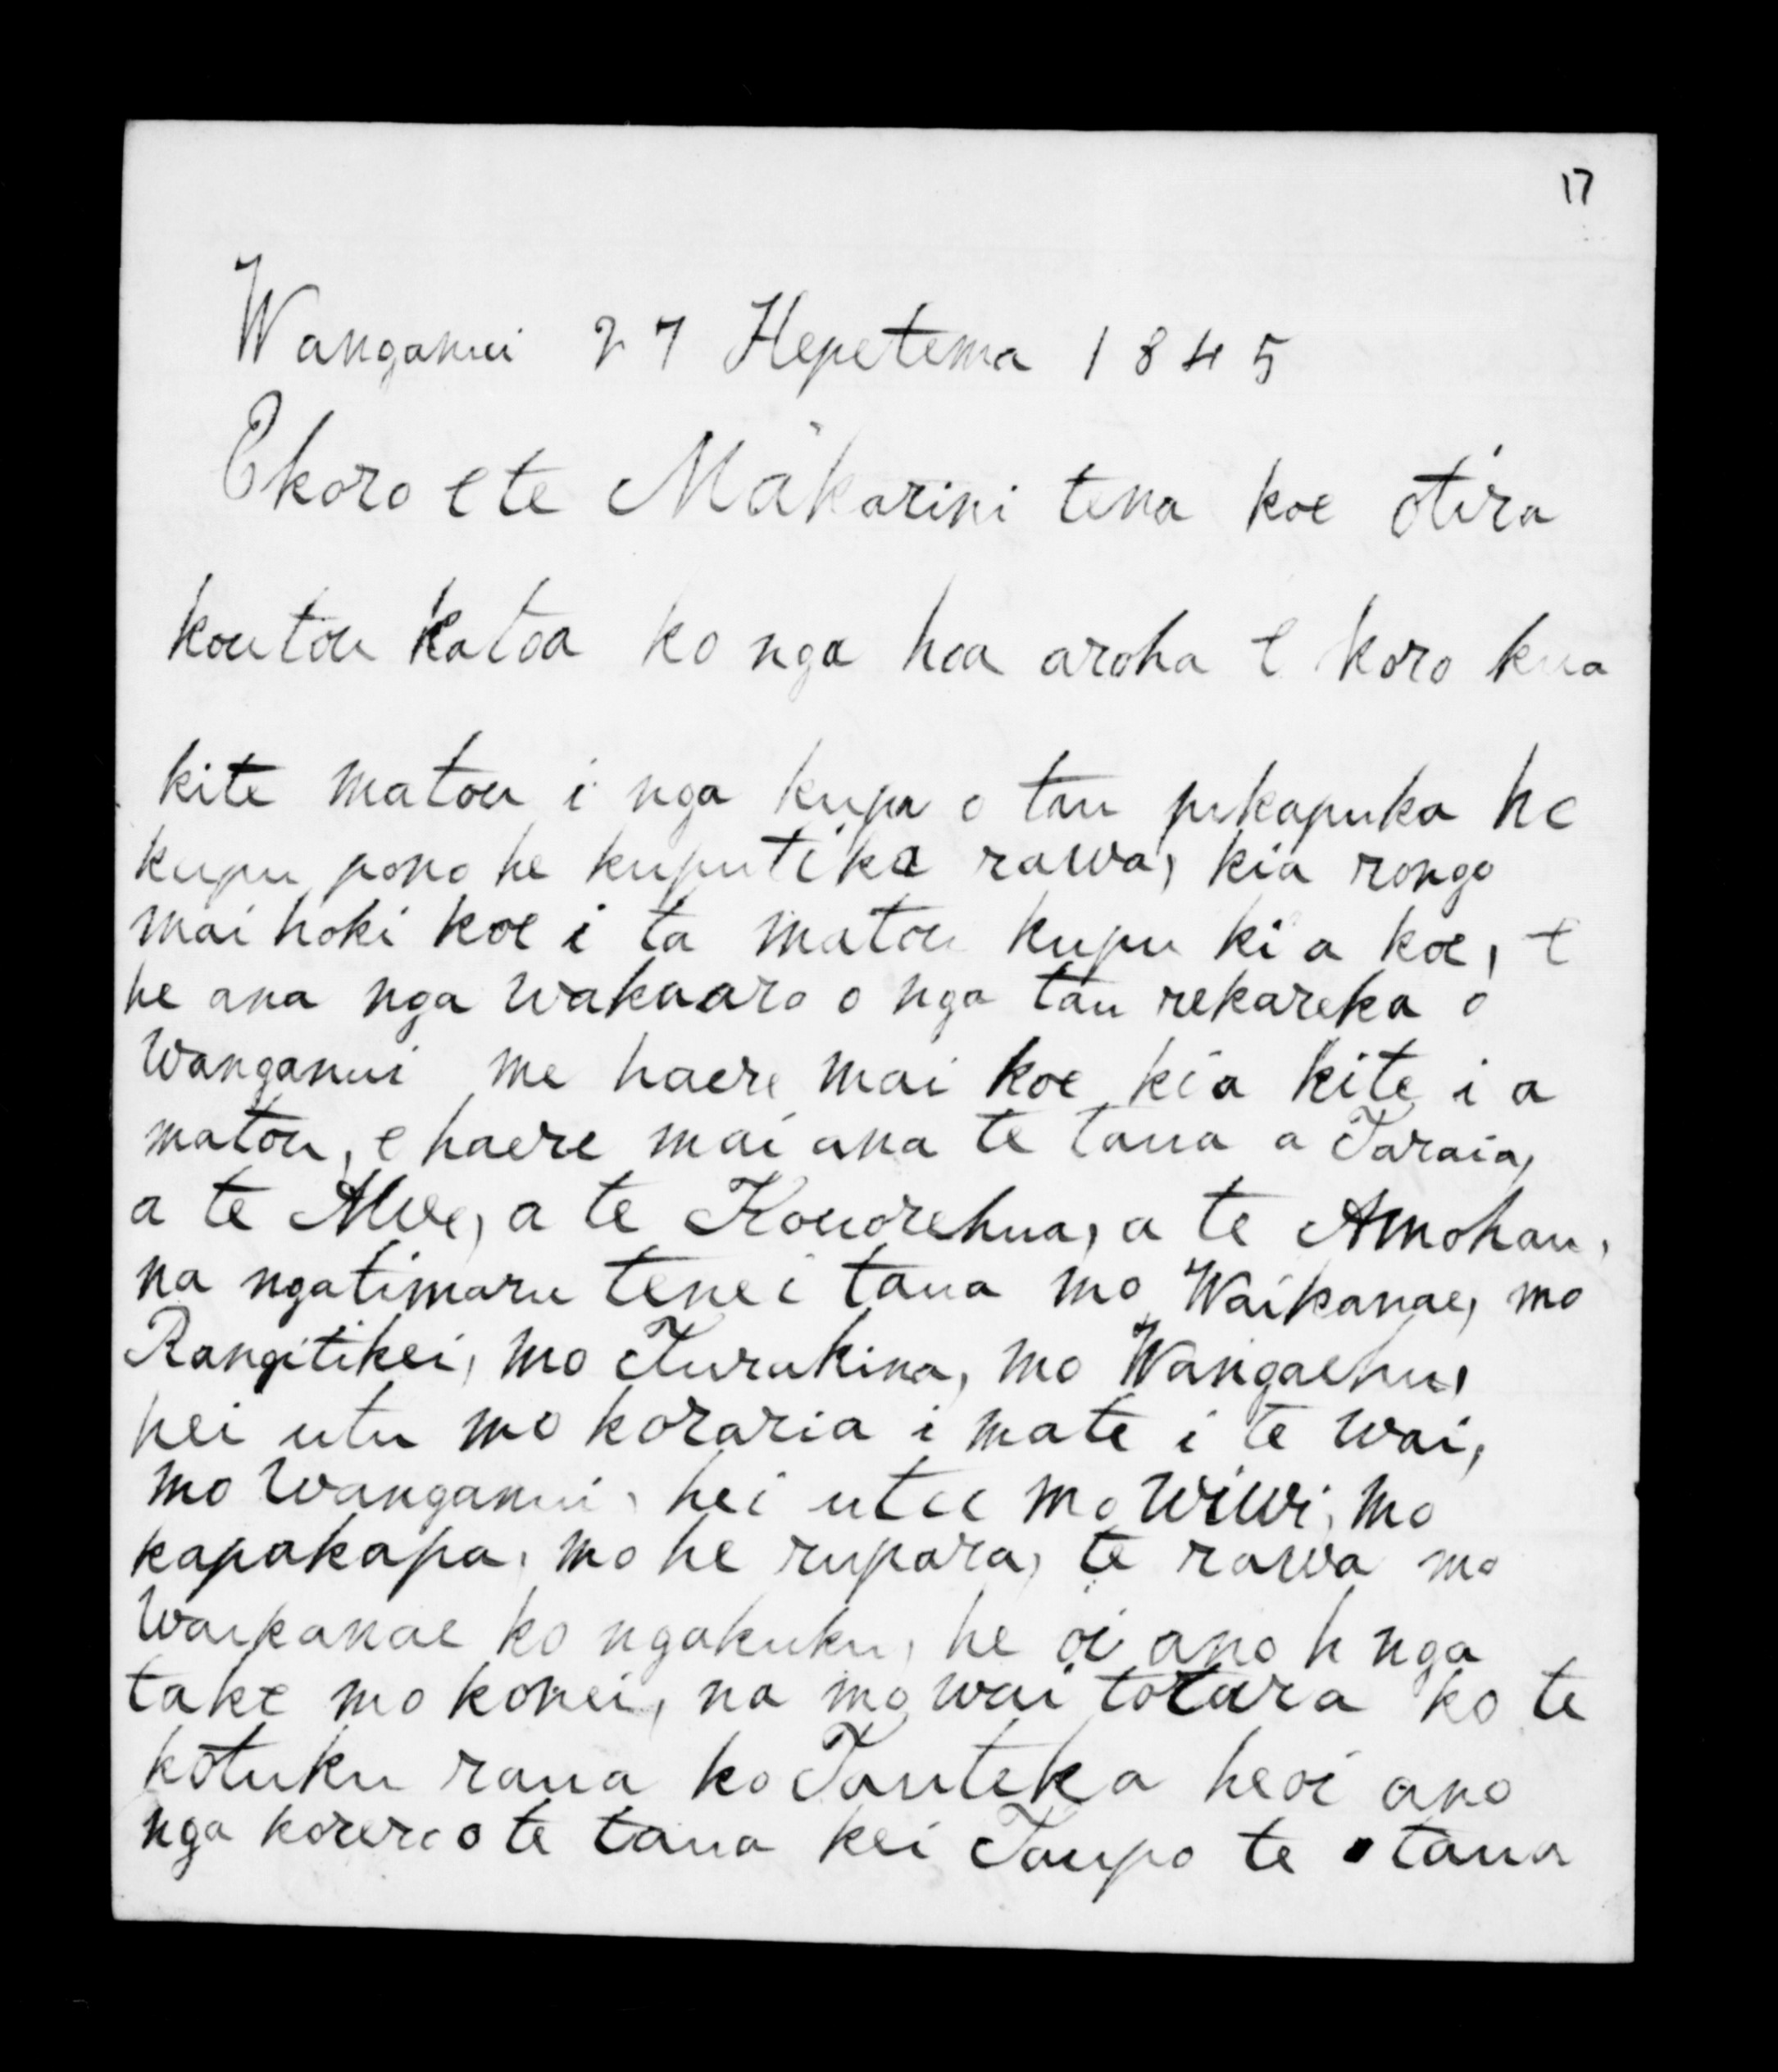 17
Wanganui 27 Hepetema 1845
E koro e te Makarini tena koe otira
koutou katoa ko nga hoa aroha e koro kua
kite matou i nga kupu o tau pukapuka he
kupu pono he kupu tika rawa, kia rongo
mai hoki koe i ta matou kupu ki a koe, e
he ana nga wakaaro o nga tau rekareka o
Wanganui me haere mai koe kia kite i a
matou, e haere mai ana te taua a Taraia,
a te a te Kouorehua, a te Amohau,
na ngatimaru tenei taua mo Waikanae, mo
Rangitikei, mo Turakina, mo Wangaehu,
hei utu mo koraria i mate i te wai,
mo Wanganui, hei utu mo Wiwi, mo
kapakapa, mo he rupara, te rawa mo
Waikanae ko ngakuku, he oi ano h nga
take mo konei, na mo wai totara ko te
kotuku raua ko Tauteka heoi ano
nga korero o te taua kei Taupo te taua